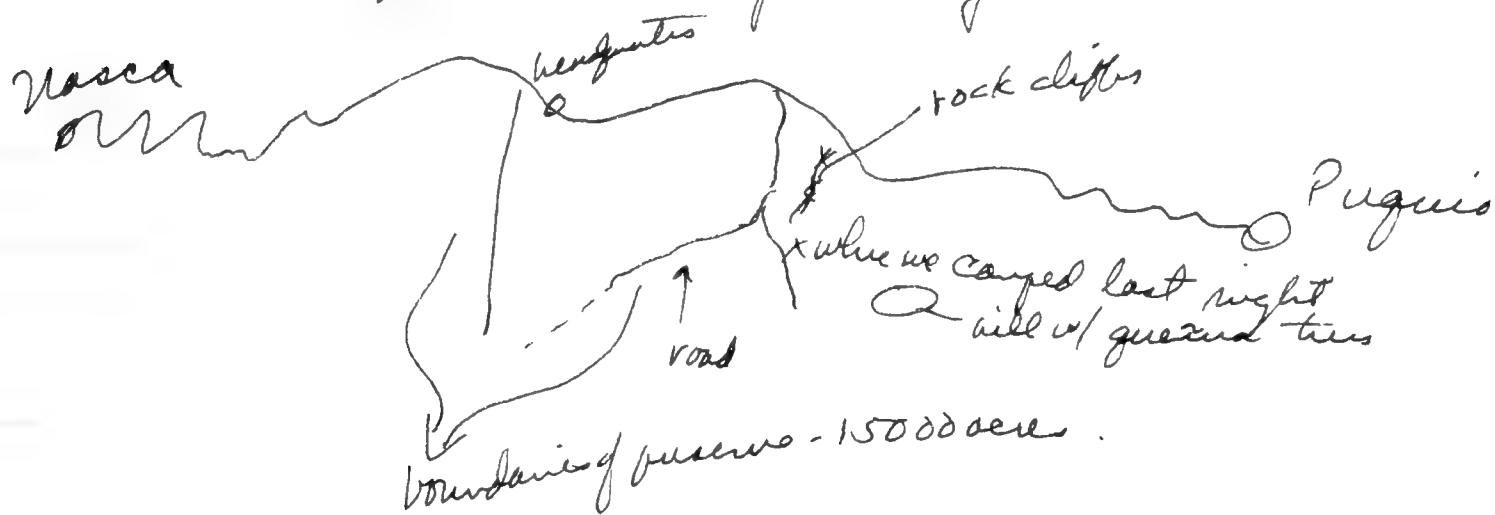 Nasca
headquarters
rock cliffs
Puquio
x where we camped last night
hill w/ quenua trees
road
boundaries of preserve - 15000 acres.